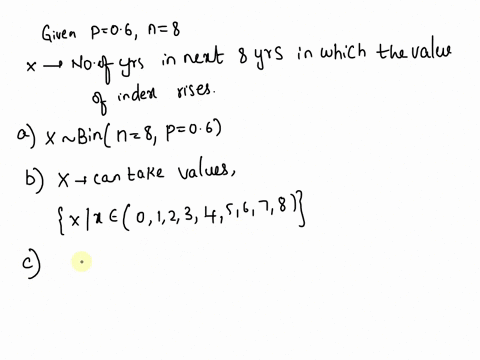 Given p=0.6, n=8
x → No. of yrs in next 8 yrs in which the value
of index rises.
a) X ~ Bin( n=8, p=0.6)
b) X → can take values,
{x/x ∈ (0,1,2,3,4,5,6,7,8)}
c)